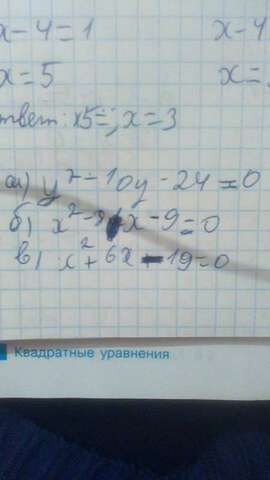 x-4=1
x-4
x=5
x=
твет: x5=; x=3
а) y²-10y-24=0
б) x²-x-9=0
в) x²+6x-19=0
Квадратные уравнения